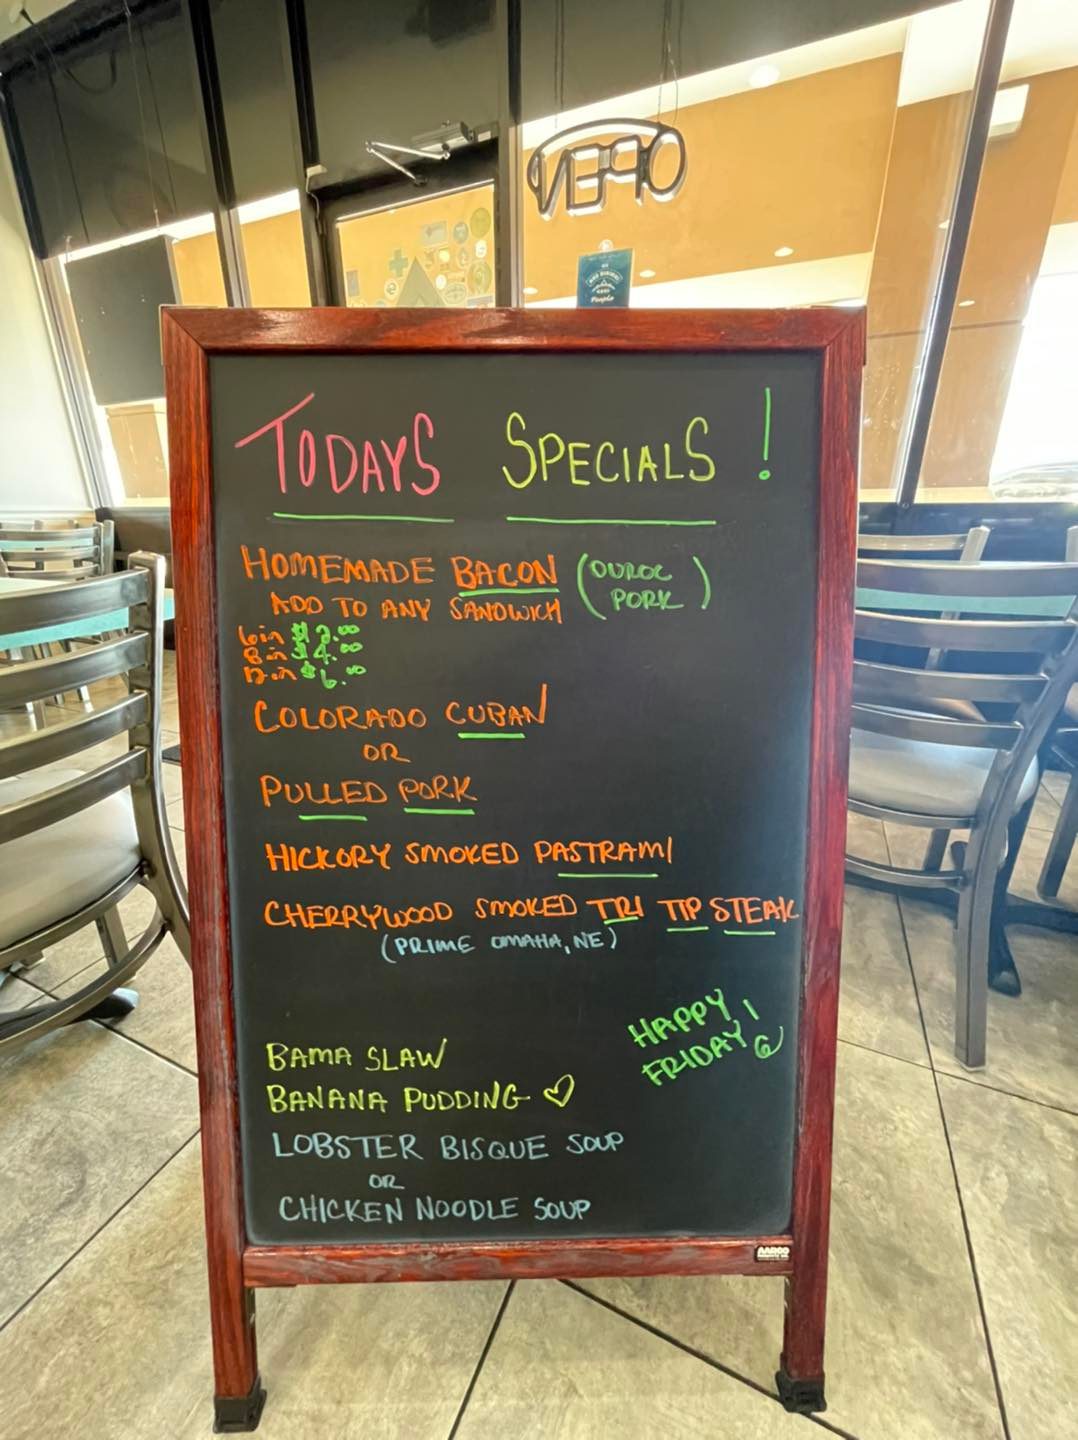 OPEN
TODAYS SPECIALS!
HOMEMADE BACON (DUROC PORK)
ADD TO ANY SANDWICH
6in $2.00
8in $4.00
12in $6.00
COLORADO CUBAN
OR
PULLED PORK
HICKORY SMOKED PASTRAMI
CHERRYWOOD SMOKED TRI TIP STEAK
(PRIME OMAHA, NE)
HAPPY
FRIDAY!
BAMA SLAW
BANANA PUDDING ♡
LOBSTER BISQUE SOUP
OR
CHICKEN NOODLE SOUP
AARCO